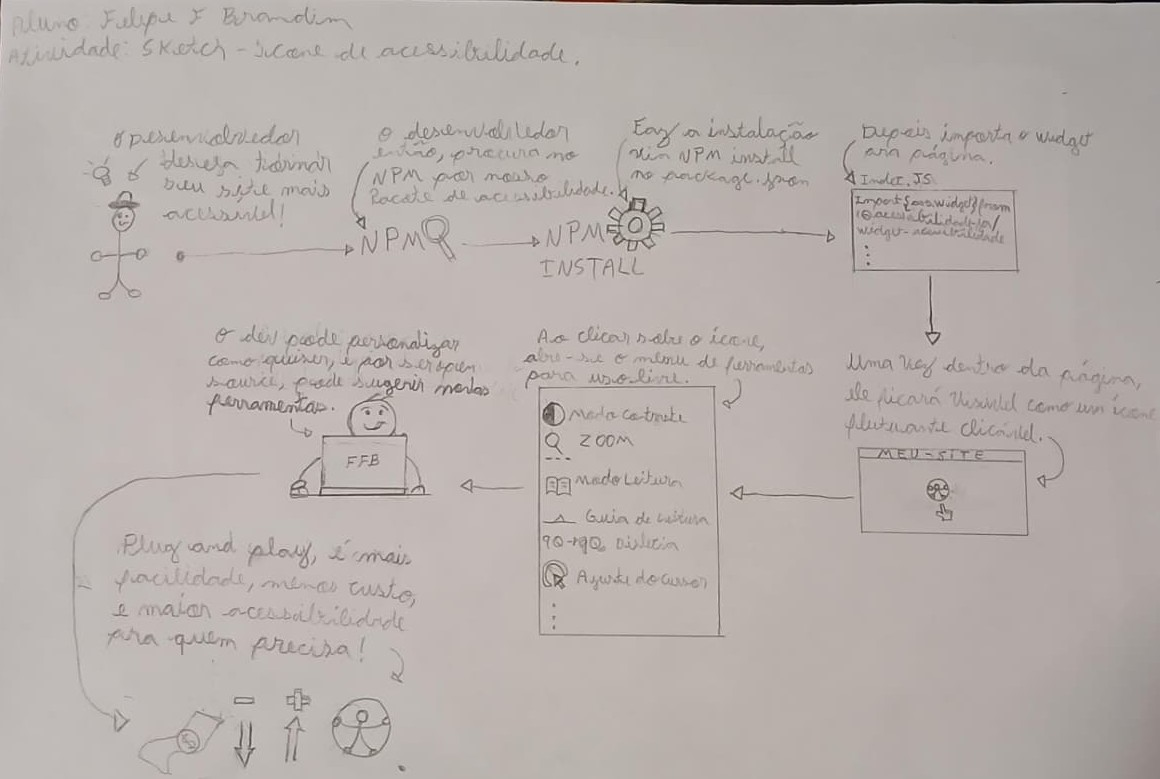 Aluno Felipe F Brandim
Atividade: Sketch - ícone de acessibilidade.
O Desenvolvedor
deseja tornar
seu site mais
acessível!
O desenvolvedor
então, procura no
NPM por nosso
Pacote de acessibilidade.
Faz a instalação
via NPM install
no package.json
Depois importa o widget
pra página.
Index.JS
Import{ }from
widget-acessibilidade
NPM
NPM
INSTALL
O dev pode personalizar
como quiser, e por ser open
source, pode sugerir novas
ferramentas.
FFB
Ao clicar sobre o ícone,
abre-se o menu de ferramentas
para uso livre.
Modo Contraste
ZOOM
Modo Leitura
Guia de Leitura
Dislexia
Ajuste do cursor
Uma vez dentro da página,
ele ficará visível como um ícone
flutuante clicável.
MEU-SITE
Plug and play, é mais
facilidade, menos custo,
e maior acessibilidade
pra quem precisa!
- +